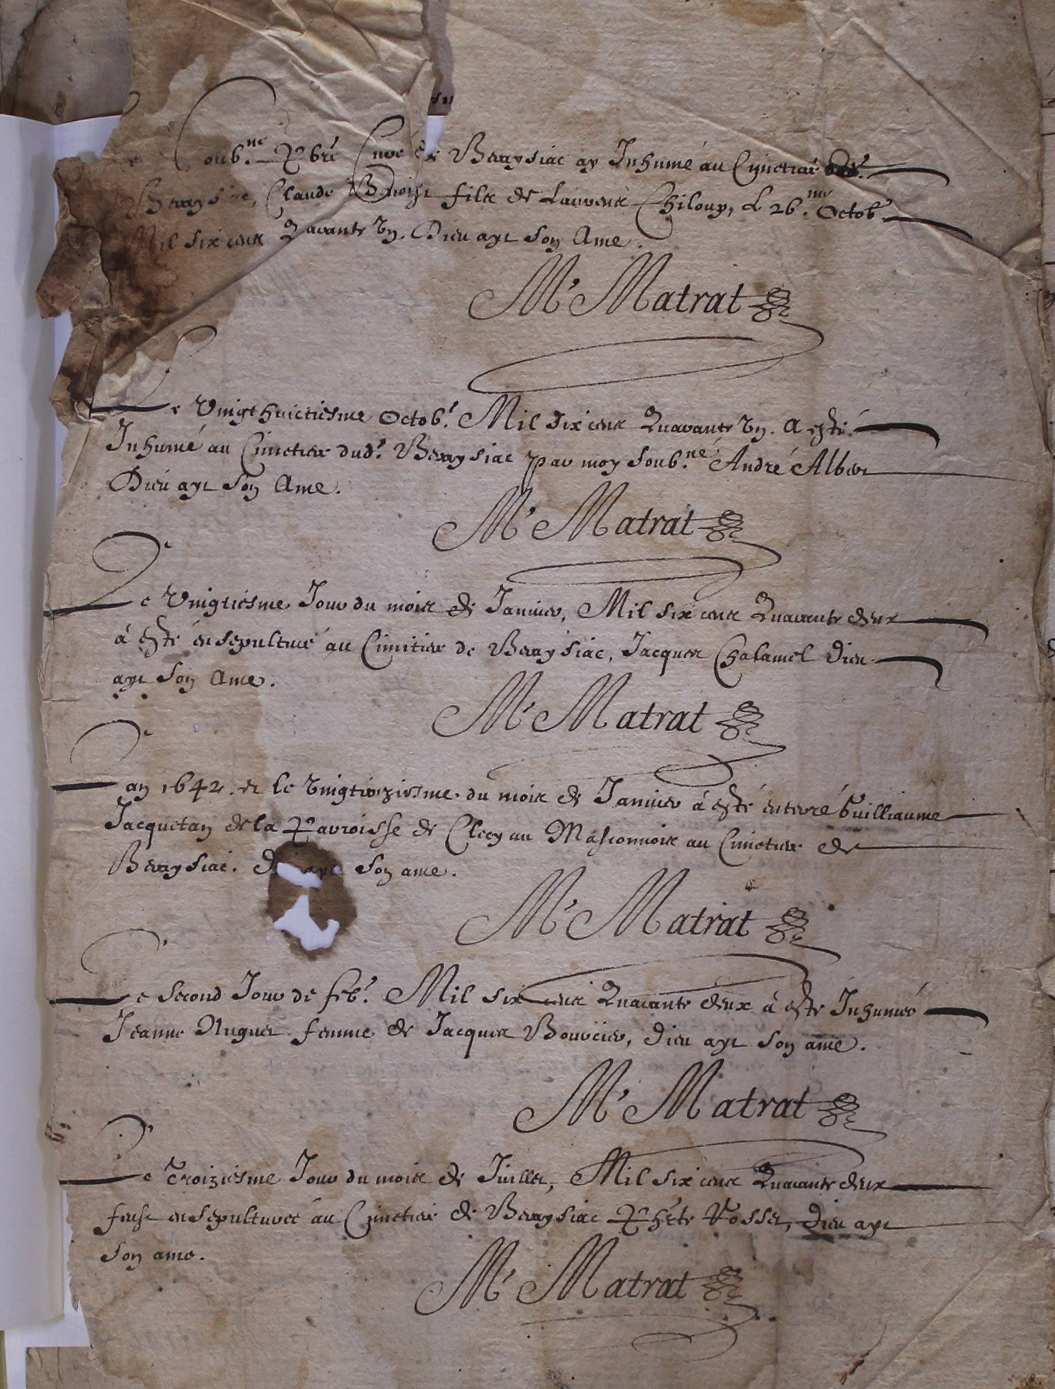 Soub.né Pbre Curé de Beaysiac ay Inhumé au Cymetiere dud.t
Beaysiac, Claude Benoiste fille de Laurens Chiloup, Le 26.me Octob
Mil six cens Quarante Un. Dieu aye Son Ame.
M. Matrat
Le Vingt huictiesme Octob.r Mil Six cens Quarante Un. A esté
Inhumé au Cimetiere dud.t Beaysiac par moy Soub.né André Alber
Dieu aye Son Ame.
M. Matrat
Le Vingtiesme Jour du mois de Janvier, Mil six cens Quarante deux
à esté ensepulturé au Cimitiere de Beaysiac, Jacques Chalamel Dieu
aye Son Ame.
M. Matrat
Lan 1642. et le vingtroiziesme du mois de Janvier à esté enterré Guilliaume
Jacquetan de la Parroisse de Clecy au Masconnois au Cimetiere de
Beaysiac. aye Son ame.
M. Matrat
Le Second Jour de feb.r Mil six cens Quarante deux à esté Inhumée
Jeanne Auguer femme de Jacques Bouvier, Dieu aye Son ame.
M. Matrat
Le Troiziesme Jour du mois de Juillet, Mil Six cens Quarante deux
feust ensepulturee au Cymetiere de Beaysiac Rosset, Dieu aye
Son ame.
M. Matrat